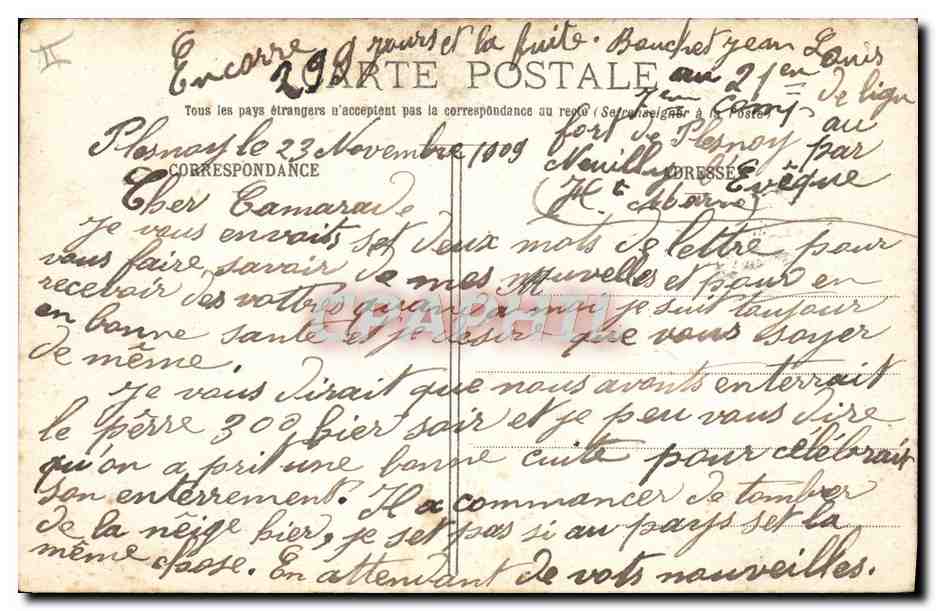 II
Encorre 299 jours et la fuite. Bouchet Jean Louis
CARTE POSTALE
au 21em de lign
7em Comp
Tous les pays étrangers n'acceptent pas la correspondance au recto (Se renseigner à la Poste)
fort de Plesnoy au
Plesnoy le 23 Novembre 1909
Neuilly l' Evêque par
CORRESPONDANCE
ADRESSE
(Hte Marne)
Cher Camarade
Je vous envoits set deux mots de lettre pour
vous faire savoir de mes nouvelles et pour en
recevoir des vottres quand a moi je suit toujour
CPAPHIL
en bonne santé et je désir que vous soyer
de même.
Je vous dirait que nous avonts enterrait
le pêrre 300 hier soir et je peu vous dire
qu'on a prit une bonne cuite pour célébrait
son enterrement. Il a commancer de tomber
de la nêige hier, je set pas si au pays set la
même chose. En attendant de vots nouveilles.